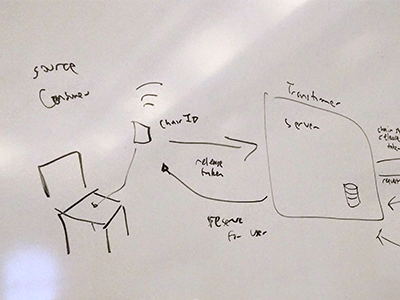 source
Consumer
chairID
release
token
reserve
for user
Transformer
Server
chair
token